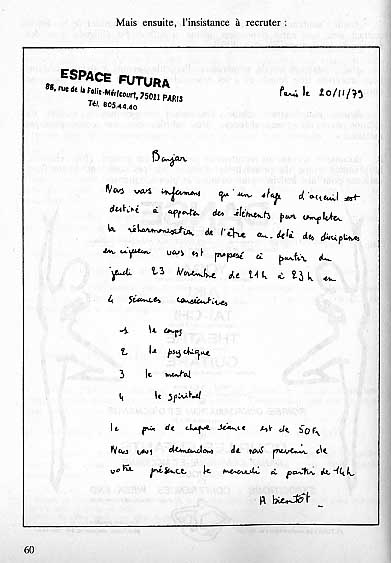 Mais ensuite, l'insistance à recruter :
ESPACE FUTURA
88, rue de la Folie-Méricourt, 75011 PARIS
Tél. 805.44.40
Paris le 20/11/79
Bonjour
Nous vous informons qu'un stage d'accueil est
destiné à apporter des éléments pour completer
la réharmonisation de l'être au-delà des disciplines
en vigueur vous est proposé à partir du
jeudi 23 Novembre de 21h à 23h en
4 séances consécutives
1 le corps
2 le psychique
3 le mental
4 le spirituel
le prix de chaque séance est de 50F
Nous vous demandons de nous prevenir de
votre présence le mercredi à partir de 14h
A bientôt _
60